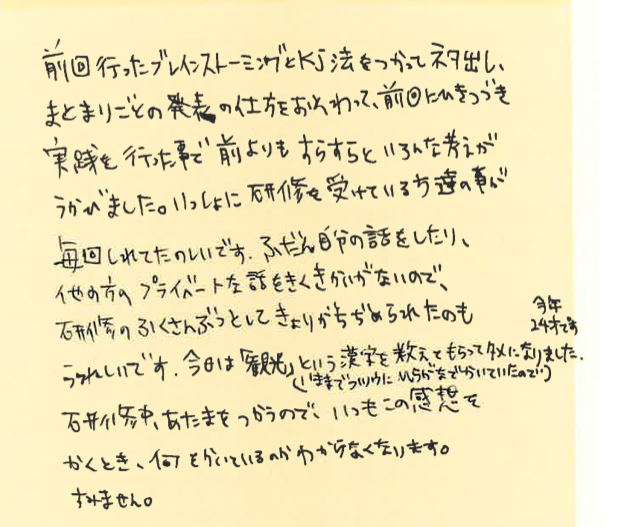 前回行ったブレインストーミングとKJ法をつかってネタ出し、
まとまりごとの発表の仕方をおそわって、前回にひきつづき
実践を行った事で前よりもすらすらといろんな考えが
うかびました。いっしょに研修を受けている方達の事が
毎回しれてたのしいです。ふだん自分の話をしたり、
他の方のプライベートな話をきくきかいがないので、
研修のふくさんぶつとしてきょりがちぢめられたのも
うれしいです。今日は「観光」という漢字を教えてもらってタメになりました。
今年
24才です
(いままでフツウにひらがなでかいていたので)
研修中、あたまをつかうので、いつもこの感想を
かくとき、何をかいているのかわからなくなります。
すみません。